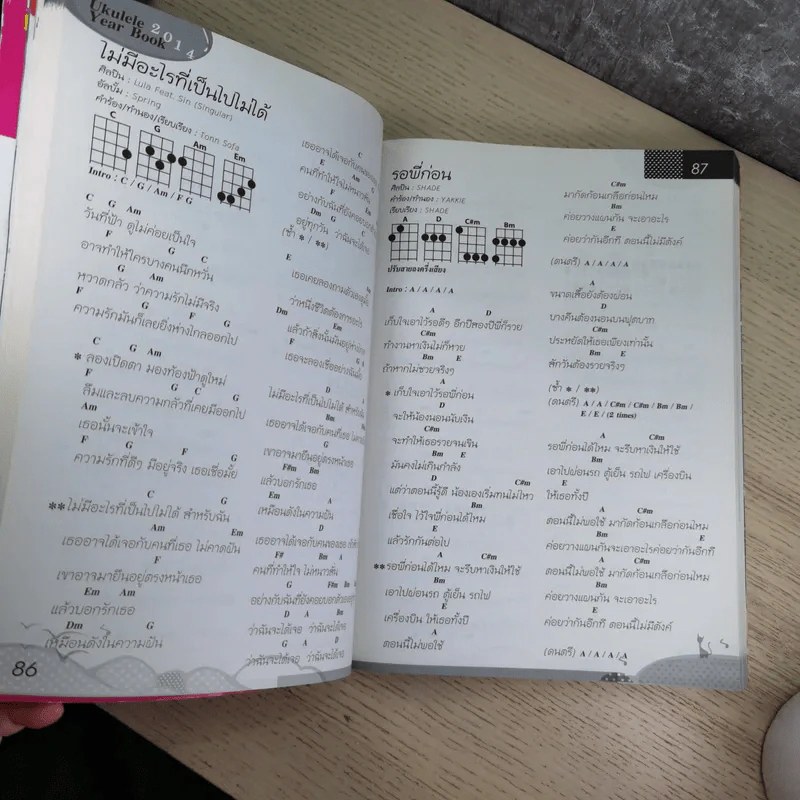 Ukulele 2014
Year Book
ไม่มีอะไรที่เป็นไปไม่ได้
ศิลปิน : Lula Feat. Sin (Singular)
อัลบั้ม : Spring
คำร้อง/ทำนอง/เรียบเรียง : Tonn Sofa
C G Am Em
Intro : C / G / Am / F G
C G Am
วันที่ฟ้า ดูไม่ค่อยเป็นใจ
F G C
อาจทำให้ใครบางคนนึกหวั่น
G Am
หวาดกลัว ว่าความรักไม่มีจริง
F G F G
ความรักมันก็เลยยิ่งห่างไกลออกไป
C G Am
* ลองเปิดตา มองท้องฟ้าดูใหม่
F G C G
ลืมและลบความกลัวที่เคยมีออกไป
Am
เธอนั้นจะเข้าใจ
F G F G
ความรักที่ดีๆ มีอยู่จริง เธอเชื่อมั้ย
C G
** ไม่มีอะไรที่เป็นไปไม่ได้ สำหรับฉัน
Am Em
เธออาจได้เจอกับคนที่เธอ ไม่คาดฝัน
F G
เขาอาจมายืนอยู่ตรงหน้าเธอ
Em Am
แล้วบอกรักเธอ
Dm G
เหมือนดังในความฝัน
86
C
เธออาจได้เจอกับคน
E Am
คนที่ทำให้ใจไม่หนาว
F Em
อย่างกับฉันที่ยังคอย
Dm G C
อยู่ทุกวัน ว่าฉันจะได้เจอ
(ซ้ำ * / **)
E
เธอเคยลอง
Dm Em
แล้วถ้าสิ่งนั้นมัน
F G
เธอจะลองเชื่อ
D A
ไม่มีอะไรที่เป็นไปไม่ได้
Bm
เธออาจได้เจอกับคนที่เธอ
G
เขาอาจมายืนอยู่ตรงหน้าเธอ
F#m Bm
แล้วบอกรักเธอ
Em A
เหมือนดังในความฝัน
D
เธออาจได้เจอกับคนของเธอ
F# Bm A
คนที่ทำให้ใจ ไม่หนาวสั่น
G F#m Bm
อย่างกับฉันที่ยังคอยบอกตัวเอง
D A Bm
ว่าฉันจะได้เจอ ว่าฉันจะได้เจอ
G A D
ว่าฉันจะได้เจอ ว่าฉันจะได้เจอ
87
รอพี่ก่อน
ศิลปิน : SHADE
คำร้อง/ทำนอง : YAKKIE
เรียบเรียง : SHADE
A D C#m Bm
ปรับสายลงครึ่งเสียง
Intro : A / A / A / A
A D
เก็บใจเอาไว้รอดีๆ อีกปีสองปีพี่ก็รวย
C#m
ทำงานหาเงินไม่ก็หวย
Bm E
ถ้าหากไม่ซวยจริงๆ
A
* เก็บใจเอาไว้รอพี่ก่อน
D
จะให้น้องนอนนับเงิน
C#m
จะทำให้เธอรวยจนเขิน
Bm E
มันคงไม่เกินกำลัง
A C#m
แต่ว่าตอนนี้รู้ดี น้องเองเริ่มทนไม่ไหว
Bm
เชื่อใจ ไว้ใจพี่ก่อนได้ไหม
E
แล้วรักกันต่อไป
A C#m
** รอพี่ก่อนได้ไหม จะรีบหาเงินให้ใช้
Bm
เอาไปผ่อนรถ ตู้เย็น รถไฟ
E
เครื่องบิน ให้เธอทั้งปี
A
ตอนนี้ไม่พอใช้
C#m
มากัดก้อนเกลือก่อนไหม
Bm
ค่อยวางแผนกัน จะเอาอะไร
E
ค่อยว่ากันอีกที ตอนนี้ไม่มีตังค์
(ดนตรี) A / A / A / A
A
ขนาดเสื้อยังต้องผ่อน
D
บางคืนต้องนอนบนฟุตบาท
C#m
ประหยัดให้เธอเพียงเท่านั้น
Bm E
สักวันต้องรวยจริงๆ
(ซ้ำ * / **)
(ดนตรี) A / A / C#m / C#m / Bm / Bm /
E / E / (2 times)
A C#m
รอพี่ก่อนได้ไหม จะรีบหาเงินให้ใช้
Bm E
เอาไปผ่อนรถ ตู้เย็น รถไฟ เครื่องบิน
ให้เธอทั้งปี
A C#m
ตอนนี้ไม่พอใช้ มากัดก้อนเกลือก่อนไหม
Bm E
ค่อยวางแผนกันจะเอาอะไรค่อยว่ากันอีกที
A C#m
ตอนนี้ไม่พอใช้ มากัดก้อนเกลือก่อนไหม
Bm
ค่อยวางแผนกัน จะเอาอะไร
E
ค่อยว่ากันอีกที ตอนนี้ไม่มีตังค์
(ดนตรี) A / A / A / A